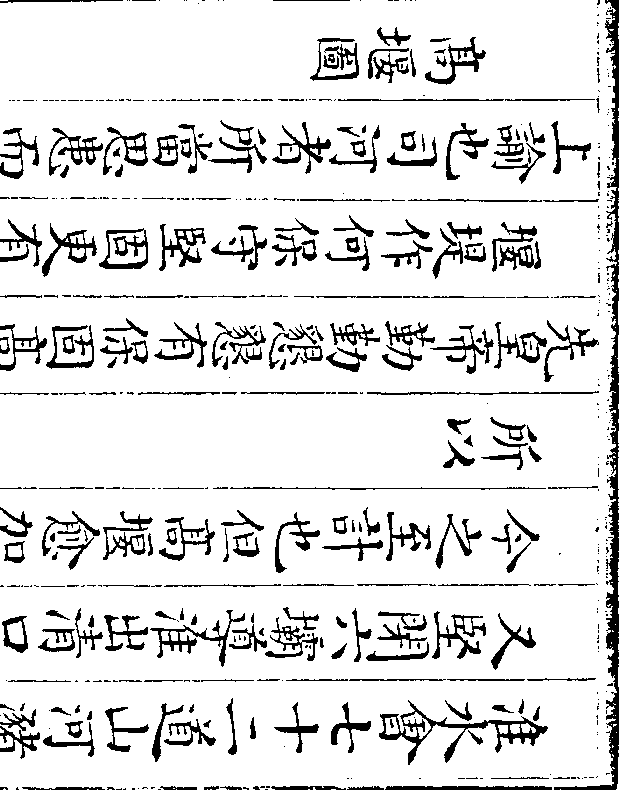 淮水會七十二道山河瀦
又堅閉六壩導淮出清口
今之至計也但高堰愈加
所以
先皇帝勤勤懇懇有保固高
堰堤作何保守堅固更有
上諭也司河者所當思患而
高堰圖